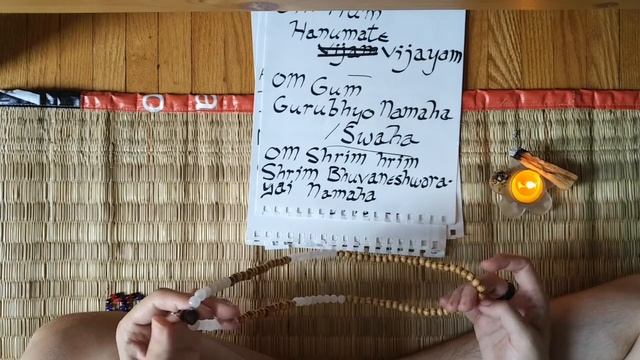 Hum
Hanumate
Vijayam
OM Gum
Gurubhyo Namaha
/Swaha
OM Shrim hrim
Shrim Bhuvaneshwara-
yai Namaha